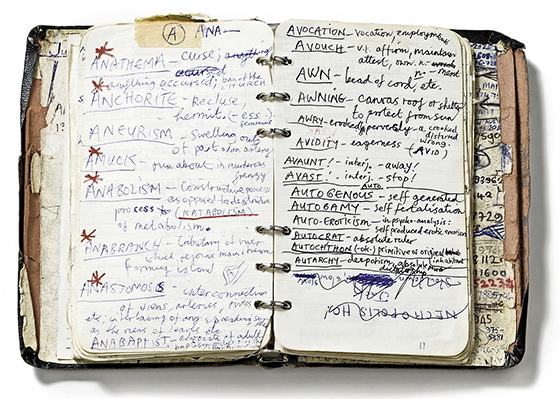 A ANA—
ANATHEMA – curse; anything
accursed
anything accursed; ban of the CHURCH
ANCHORITE – Recluse
hermit. (-ess.) feminine
ANEURISM – swelling
of part of an artery
AMUCK – run about in murderous
frenzy
ANABOLISM – Constructive process
as opposed to destructive
process (KATABOLISM)
of metabolism.
ANABRANCH – tributary of river
which rejoins main stream
forming island
ANASTOMOSIS – interconnection
of veins, arteries, rivers
etc; interlacing of any spreading
as the veins of leaves etc
ANABAPTIST – advocate of adult
AVOCATION – vocation, employment
AVOUCH – v.t. affirm, maintain
attest, own. n.
AWN – beard of corn, etc.
AWNING – canvas roof or shelter
to protect from sun
AWRY – crookedly, perversely – a. crooked
distorted
wrong.
AVIDITY – eagerness (AVID)
AVAUNT! – interj. – away!
AVAST! – interj. – stop!
AUTO
AUTOGENOUS – self generated
AUTOGAMY – self fertalisation
AUTO-EROTICISM – in psycho-analysis:
self produced erotic emotion
AUTOCRAT – absolute ruler
AUTOCHTHON (-ok-) primitive or original
inhabitant
AUTARCHY – despotism, absolute
NECROPOLIS
11